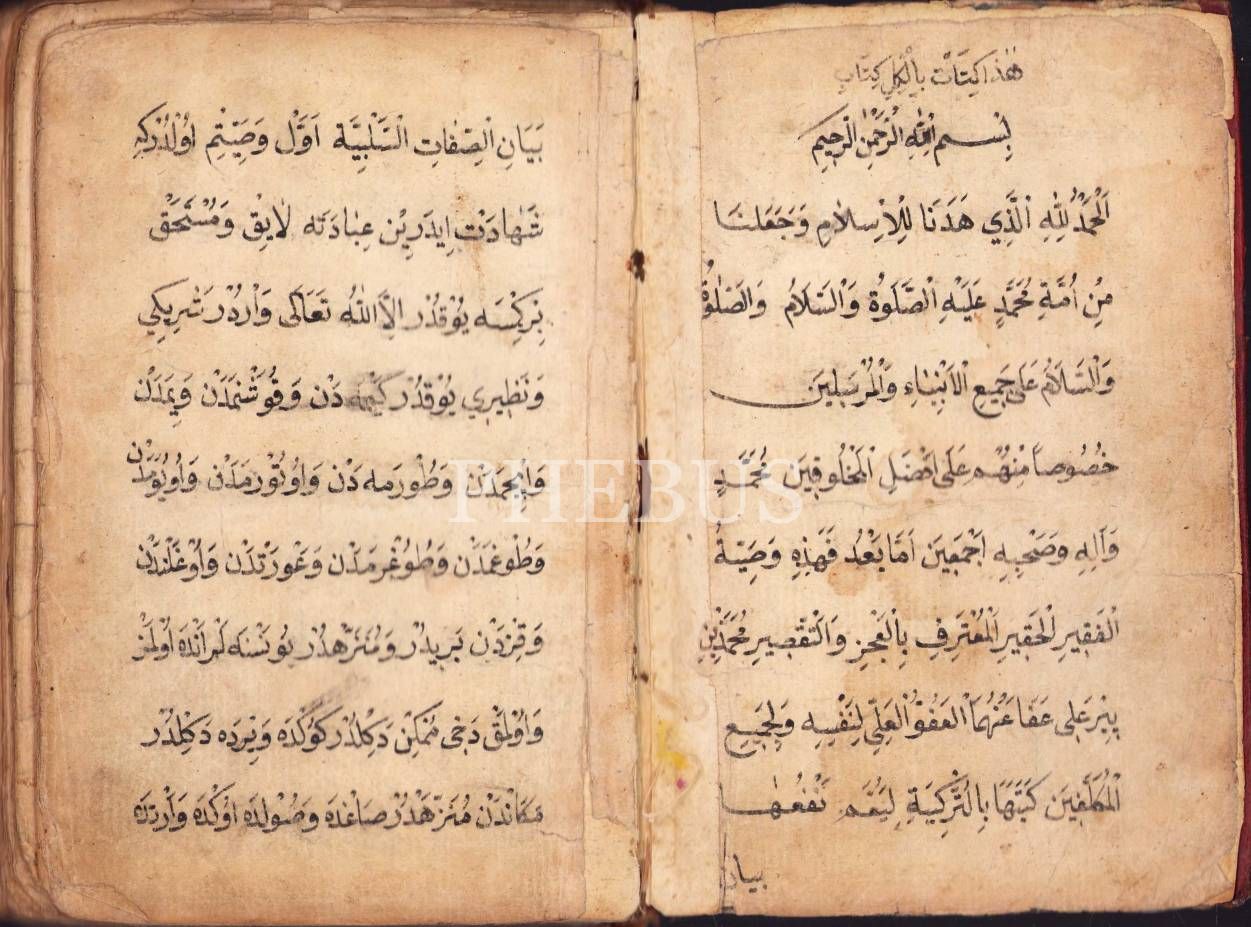 هٰذا كتاب بركلي كتاب
بِسْمِ اللهِ الرَّحْمٰنِ الرَّحِيمِ
اَلْحَمْدُ لِلّٰهِ الَّذِي هَدَنَا لِلْاِسْلَامِ وَجَعَلَنَا
مِنْ اُمَّةِ مُحَمَّدٍ عَلَيْهِ الصَّلَوةُ وَالسَّلَامُ وَالصَّلٰوةُ
وَالسَّلَامُ عَلَى جَمِيعِ الْاَنْبِيَاءِ وَالْمُرْسَلِينَ
خُصُوصاً مِنْهُمْ عَلَى اَفْضَلِ الْمَخْلُوقِينَ مُحَمَّدٍ
وَآلِهِ وَصَحْبِهِ اَجْمَعِينَ اَمَّا بَعْدُ فَهَذِهِ وَصِيَّةُ
الْفَقِيرِ الْحَقِيرِ الْمُعْتَرِفِ بِالْعَجْزِ وَالتَّقْصِيرِ مُحَمَّدِ بْنِ
بِيْرَ عَلِى عَفَا عَنْهُمَا الْعَفُوُّ الْعَلِيُّ لِنَفْسِهِ وَلِجَمِيعِ
الْمُكَلَّفِينَ كَتَبَهَا بِالتُّرْكِيَّةِ لِيَعُمَّ نَفْعُهَا
بيان
بَيَانِ الصِّفَاتِ السَّلْبِيَّة اَوَّل وَصِيَّتِم اُولْدُرْكِه
شَهَادَت اِيدَرِيْن عِبَادَتَه لَايِق وَمُسْتَحَقْ
بِرْ كِمْسَه يُوْقدُرْ اِلَّا اللهُ تَعَالَى وَارْدُرْ شَرِيكِي
وَنَظِيرِي يُوْقدُرْ دَن وَقُوشَنمَدَنْ وَيِمَدَنْ
وَاِيچمَدَنْ وَطُوْرمَه دَنْ وَاُوتُوْرمَدَنْ وَاُويُوْمَدَنْ
وَطُوْغمَدَنْ وَطُوغُرمَدَنْ وَعَوْرَتدَنْ وَاُوْغْلَنْدَنْ
وَقِزدَنْ بَرِيدُرْ وَمُنَزَّهْدُرْ بُو نَسْنَه لَرْ اَنْدَه اُولْمَزْ
وَاُوْلمَقْ دَخِى مُمْكِن دَكِلْدُرْ كَوْكْدَه وَيِرْدَه دَكِلْدُرْ
مَكَانْدَنْ مُنَزَّهْدُرْ صَاغْدَه وَصُولْدَه اُوكْدَه وَآرْدَه
PHEBUS